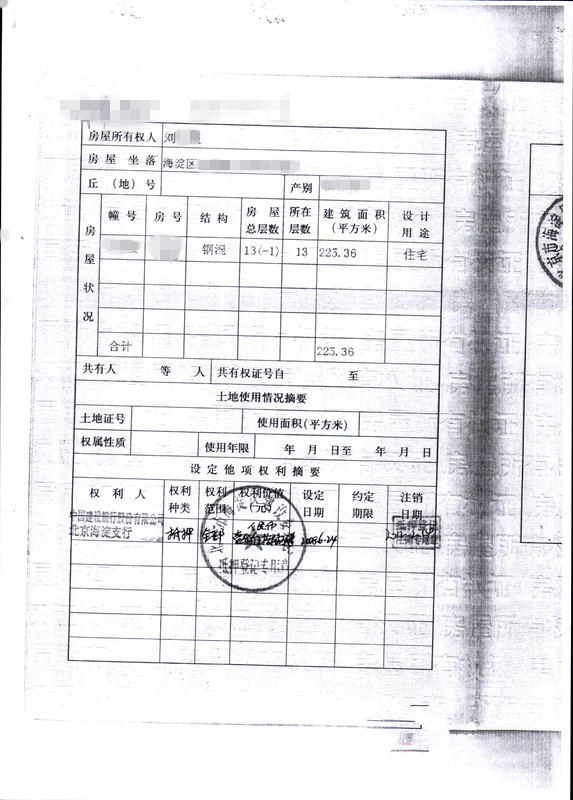 房屋所有权人 刘
房屋 坐落 海淀区
丘(地)号 产别
房屋状况
幢号 房号 结构 房屋总层数 所在层数 建筑面积(平方米) 设计用途
钢混 13(-1) 13 225.36 住宅
合计 225.36
共有人 等 人 共有权证号自 至
土地使用情况摘要
土地证号 使用面积(平方米)
权属性质 使用年限 年 月 日至 年 月 日
设定他项权利摘要
权利人 权利种类 权利范围 权利价值 设定日期 约定期限 注销日期
中国建设银行股份有限公司
北京海淀支行 抵押 全部
抵押登记专用章
抵押登记
注销专用章